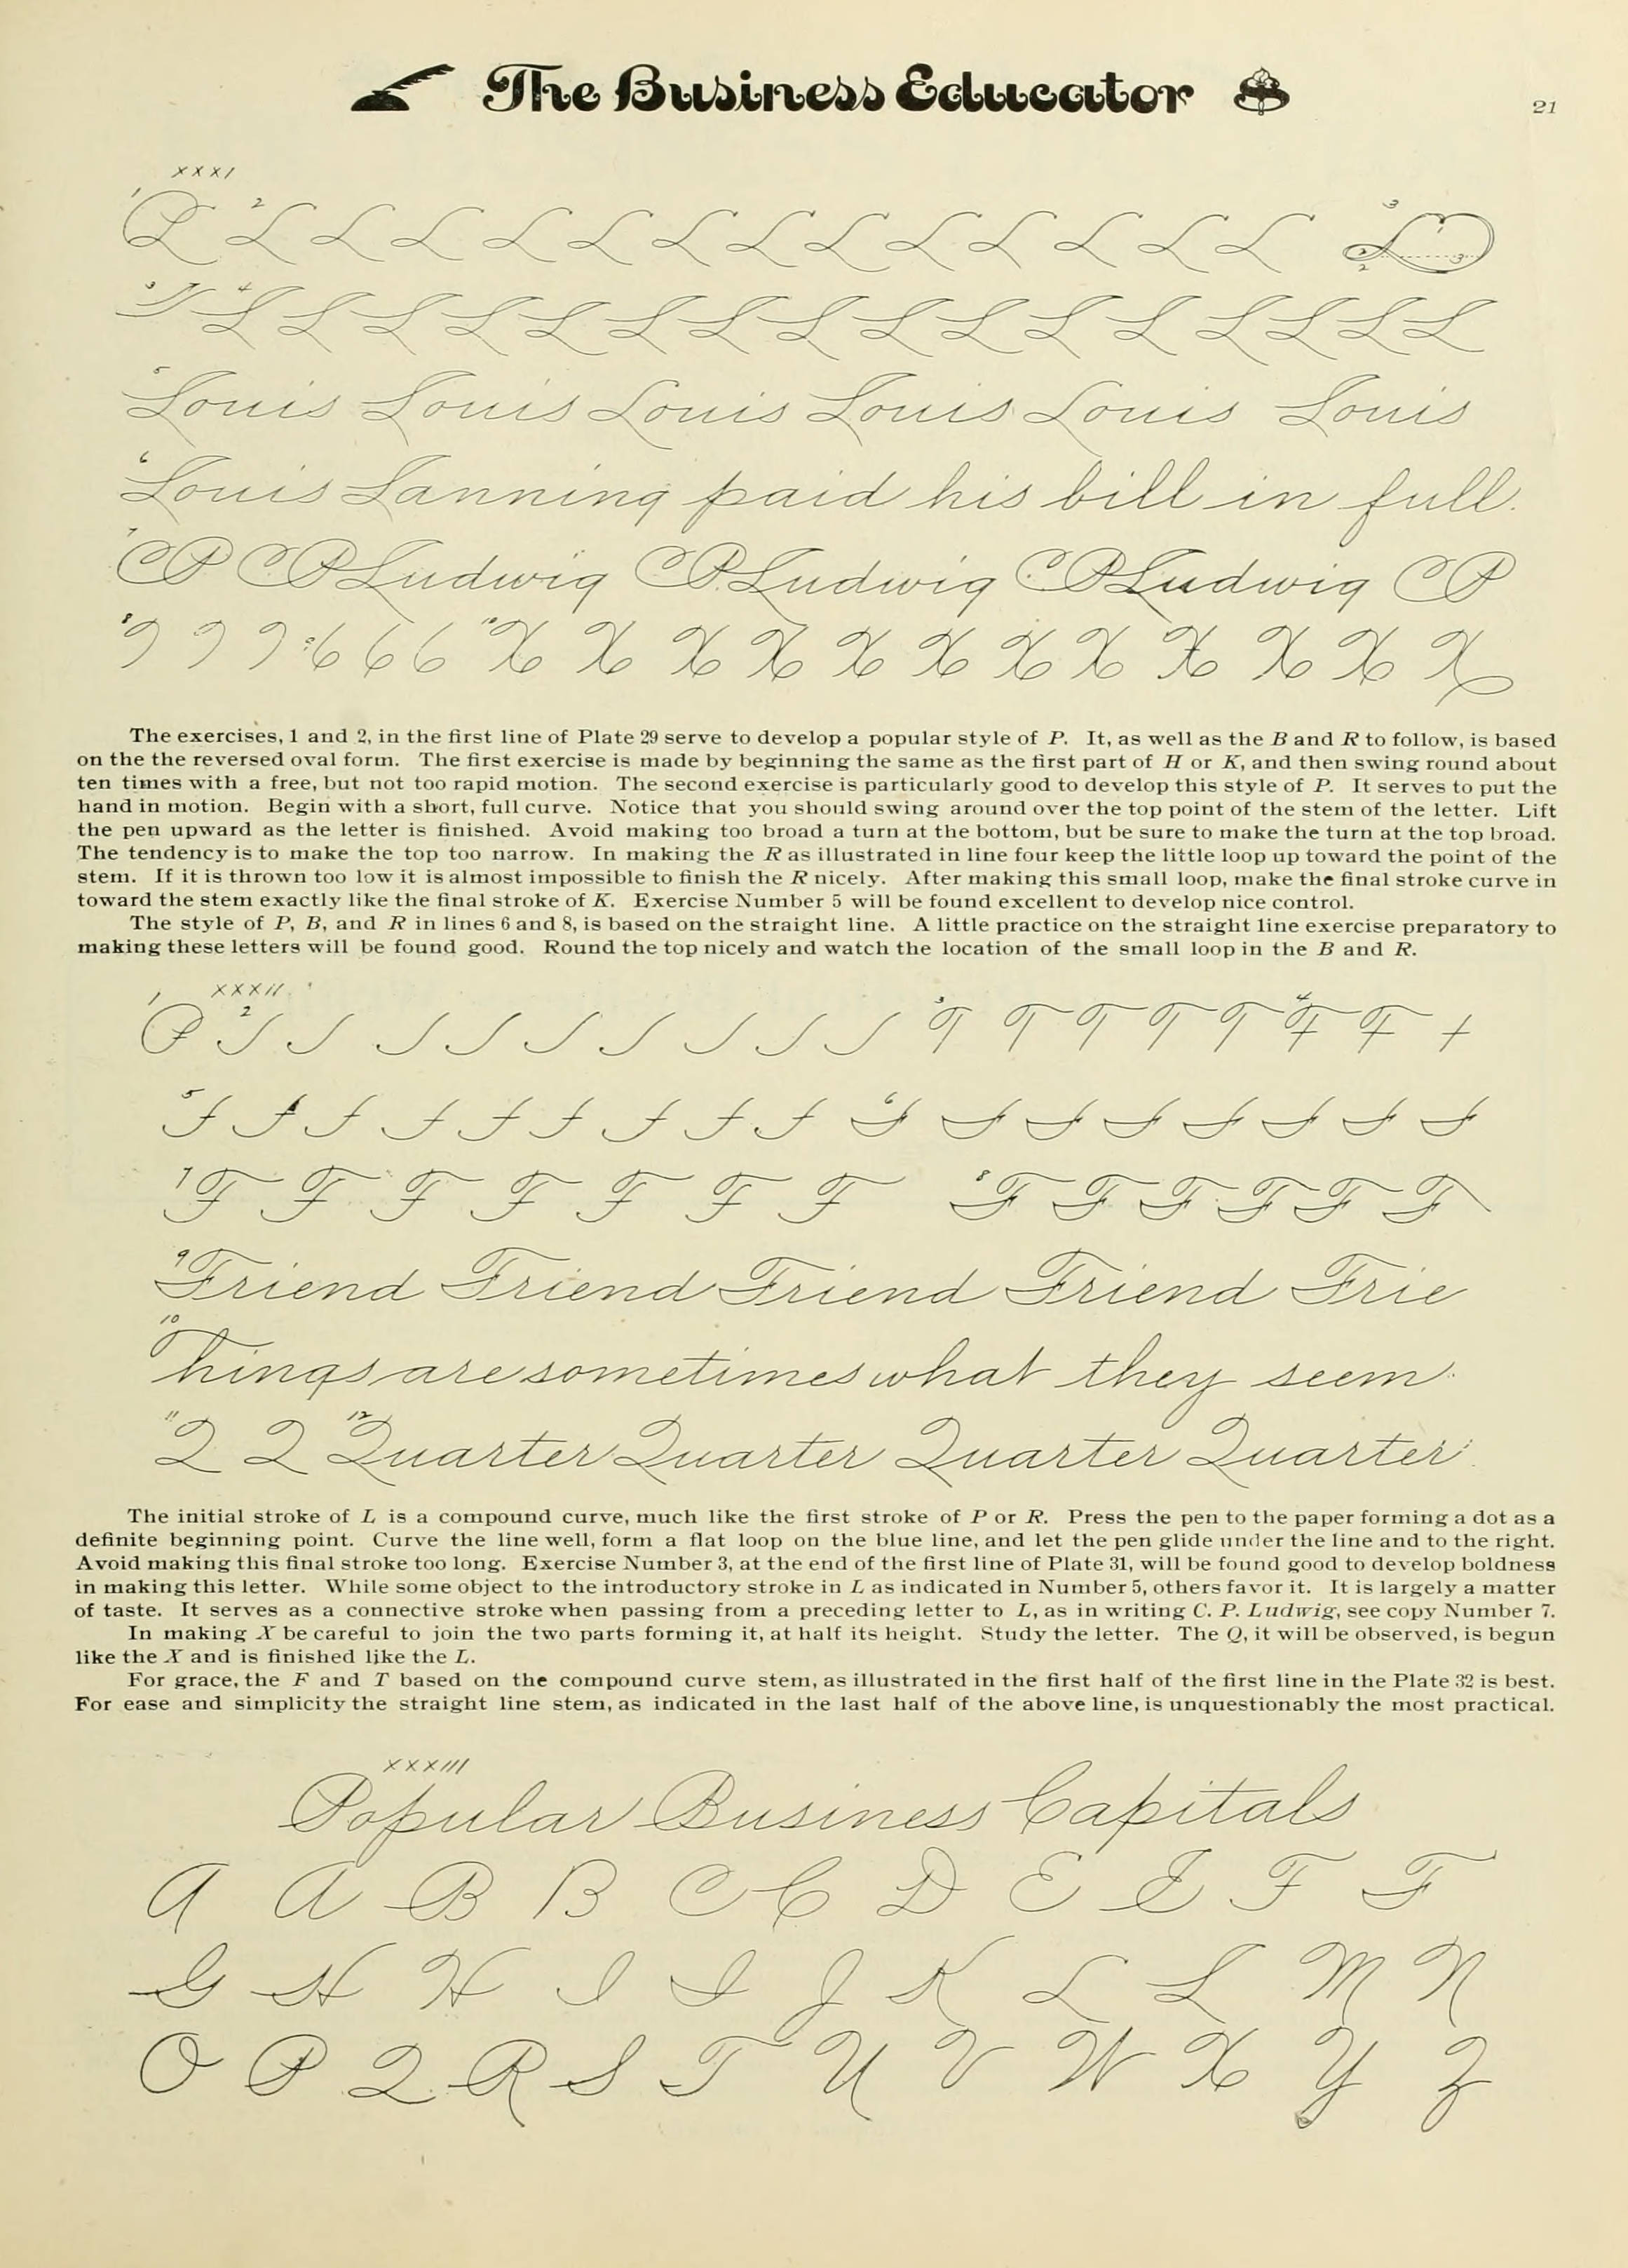 The Business Educator
21
XXXI
1 2 L L L L L L L L L L L L L 3
3 4 L L L L L L L L L L L L L L L L
5 Louis Louis Louis Louis Louis Louis
6 Louis Lanning paid his bill in full.
7 CP CPLudwig CP.Ludwig CPLudwig CP
8 9 6 6 6 10 X X X X X X X X X X X X
The exercises, 1 and 2, in the first line of Plate 29 serve to develop a popular style of P. It, as well as the B and R to follow, is based
on the the reversed oval form. The first exercise is made by beginning the same as the first part of H or K, and then swing round about
ten times with a free, but not too rapid motion. The second exercise is particularly good to develop this style of P. It serves to put the
hand in motion. Begin with a short, full curve. Notice that you should swing around over the top point of the stem of the letter. Lift
the pen upward as the letter is finished. Avoid making too broad a turn at the bottom, but be sure to make the turn at the top broad.
The tendency is to make the top too narrow. In making the R as illustrated in line four keep the little loop up toward the point of the
stem. If it is thrown too low it is almost impossible to finish the R nicely. After making this small loop, make the final stroke curve in
toward the stem exactly like the final stroke of K. Exercise Number 5 will be found excellent to develop nice control.
The style of P, B, and R in lines 6 and 8, is based on the straight line. A little practice on the straight line exercise preparatory to
making these letters will be found good. Round the top nicely and watch the location of the small loop in the B and R.
XXXII
1 2 3 T T T T T 4 F F
5 6
7 F F F F F F F 8 F F F F F F
9 Friend Friend Friend Friend Frie
10 Things are sometimes what they seem.
11 2 2 12 Quarter Quarter Quarter Quarter
The initial stroke of L is a compound curve, much like the first stroke of P or R. Press the pen to the paper forming a dot as a
definite beginning point. Curve the line well, form a flat loop on the blue line, and let the pen glide under the line and to the right.
Avoid making this final stroke too long. Exercise Number 3, at the end of the first line of Plate 31, will be found good to develop boldness
in making this letter. While some object to the introductory stroke in L as indicated in Number 5, others favor it. It is largely a matter
of taste. It serves as a connective stroke when passing from a preceding letter to L, as in writing C. P. Ludwig, see copy Number 7.
In making X be careful to join the two parts forming it, at half its height. Study the letter. The Q, it will be observed, is begun
like the X and is finished like the L.
For grace, the F and T based on the compound curve stem, as illustrated in the first half of the first line in the Plate 32 is best.
For ease and simplicity the straight line stem, as indicated in the last half of the above line, is unquestionably the most practical.
XXXIII
Popular Business Capitals
A A B B C C D E E F F
G H H I I J K L L M N
O P Q R S T U V W X Y Z